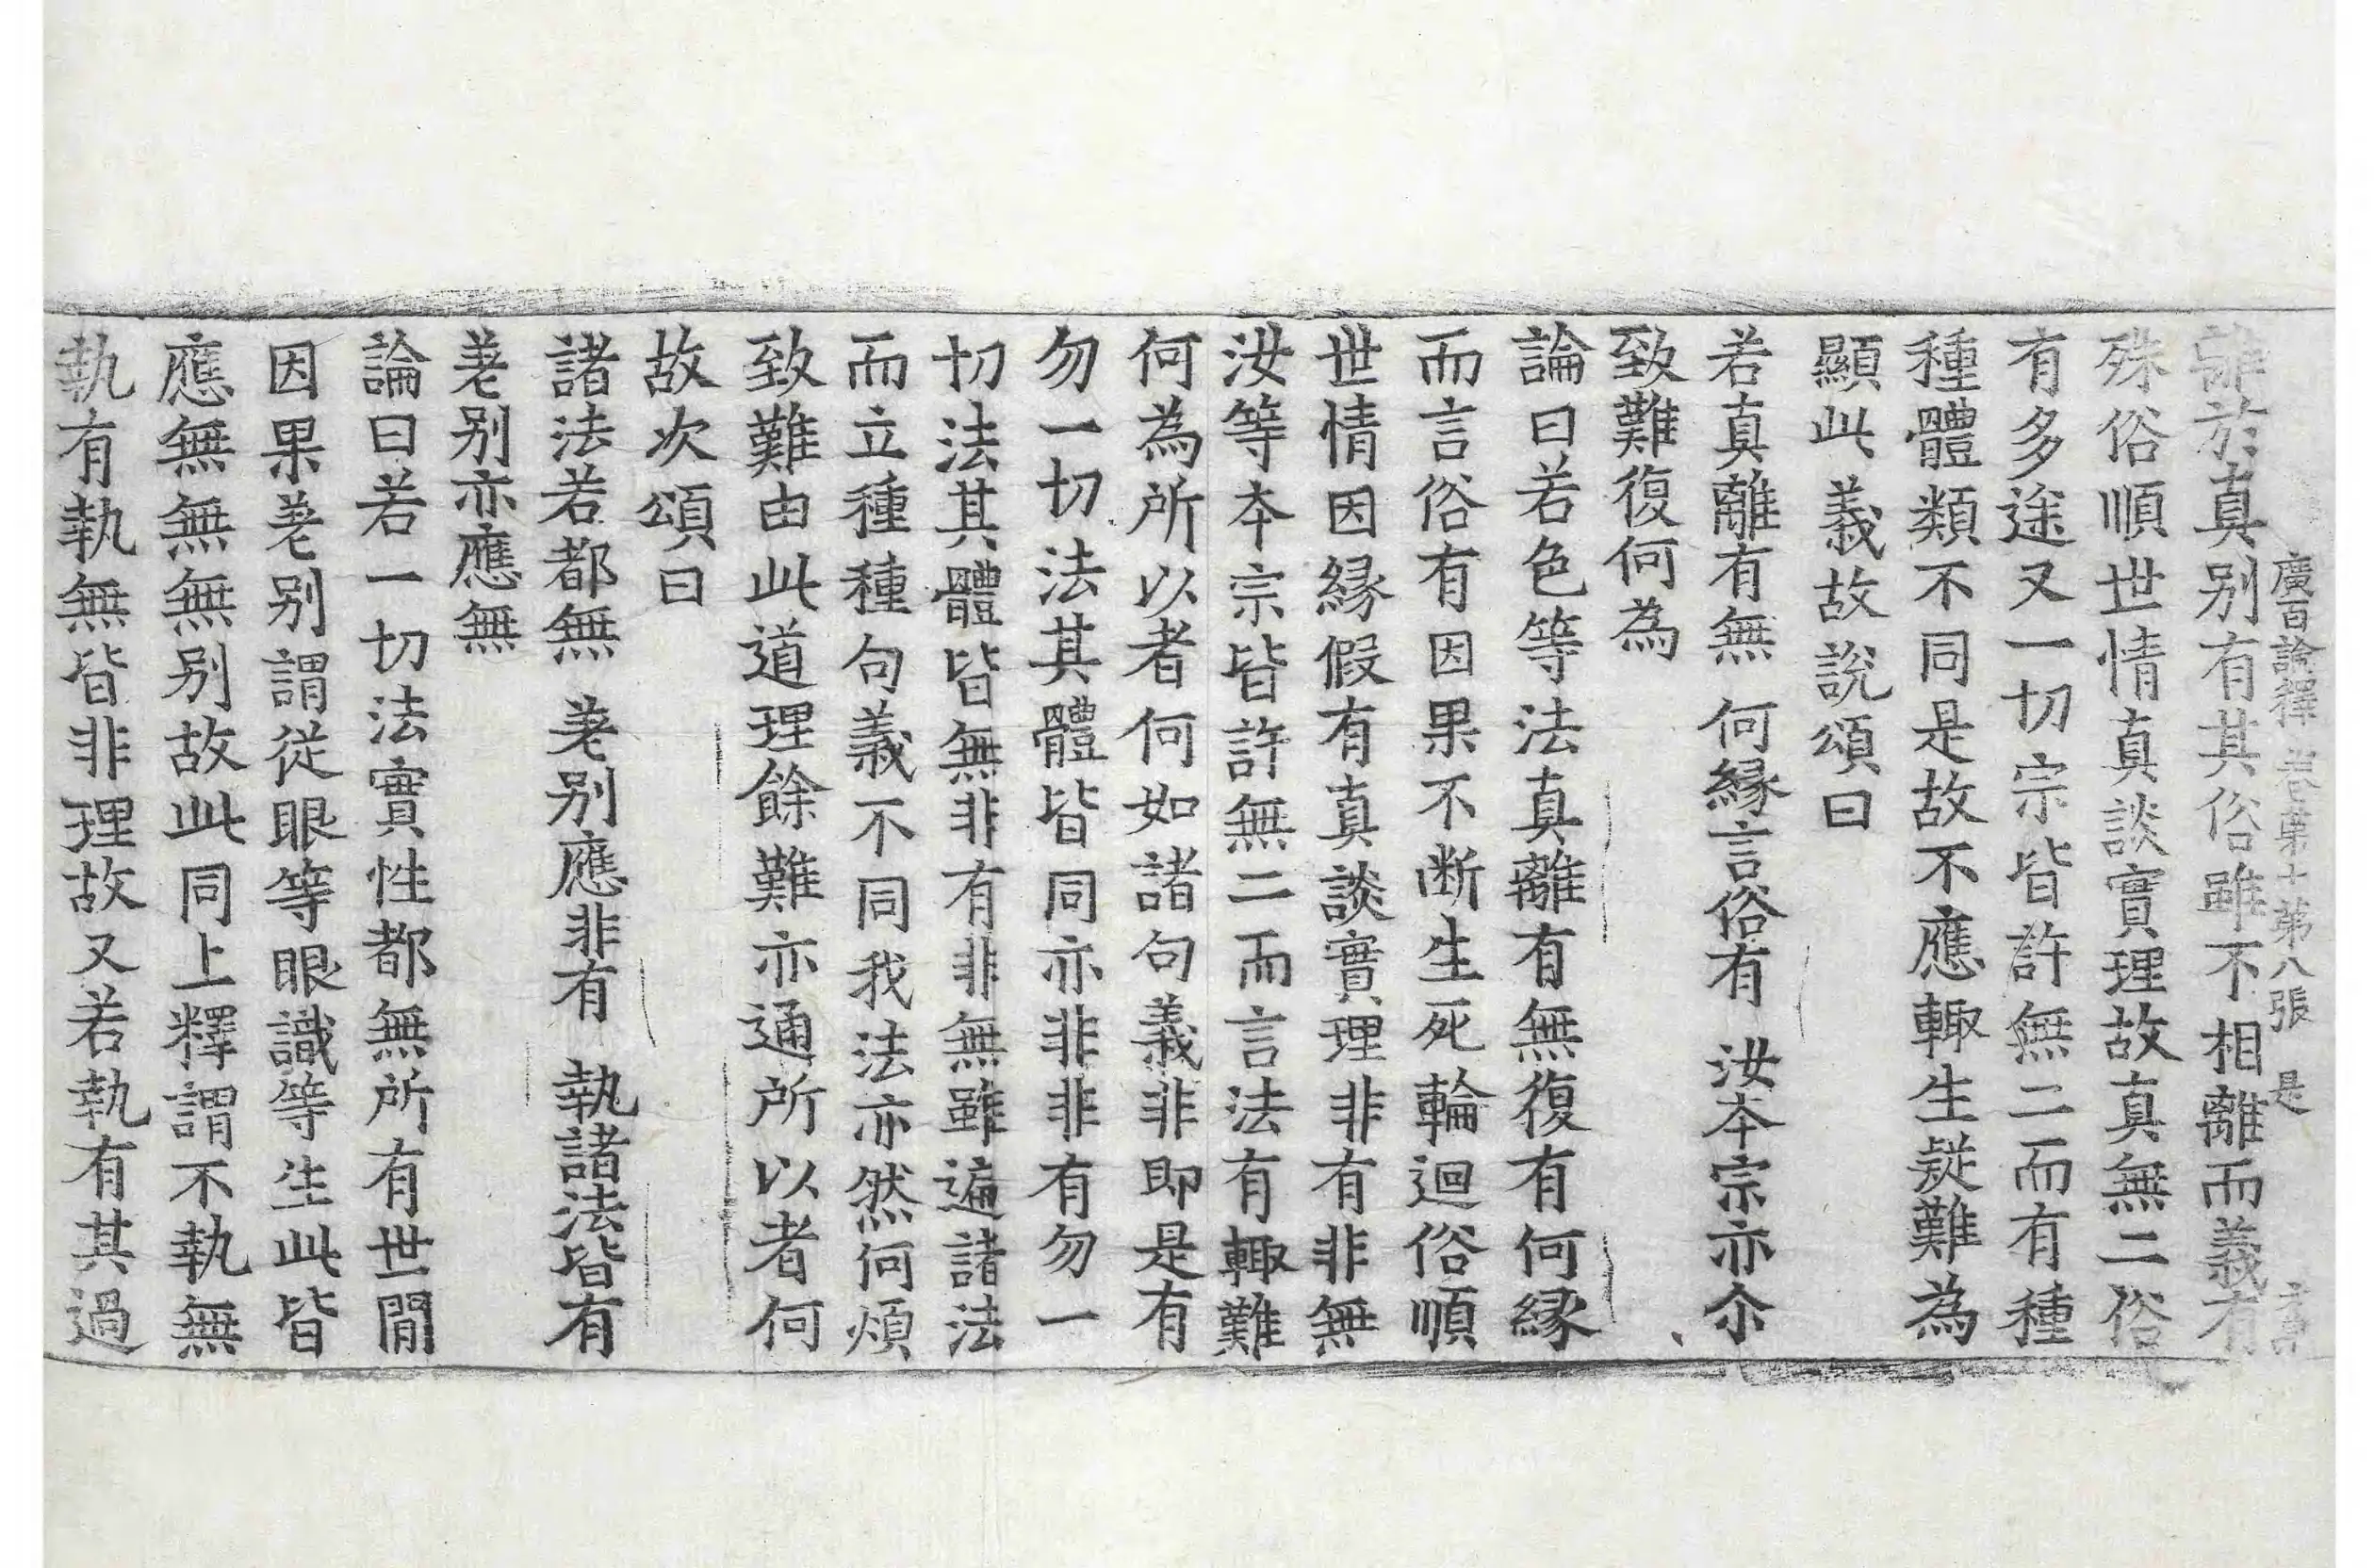 廣百論釋 卷第十 第八張 是
離於真别有其俗雖不相離而義有
殊俗順世情真談實理故真無二俗
有多途又一切宗皆許無二而有種
種體類不同是故不應輙生疑難為
顯此義故說頌曰
若真離有無 何縁言俗有 汝本宗亦尒
致難復何為
論曰若色等法真離有無復有何縁
而言俗有因果不断生死輪迴俗順
世情因縁假有真談實理非有非無
汝等本宗皆許無二而言法有輙難
何為所以者何如諸句義非即是有
勿一切法其體皆同亦非非有勿一
切法其體皆無非有非無雖遍諸法
而立種種句義不同我法亦然何煩
致難由此道理餘難亦通所以者何
故次頌曰
諸法若都無 差别應非有 執諸法皆有
差别亦應無
論曰若一切法實性都無所有世間
因果差别謂從眼等眼識等生此皆
應無無無别故此同上釋謂不執無
執有執無皆非理故又若執有其過